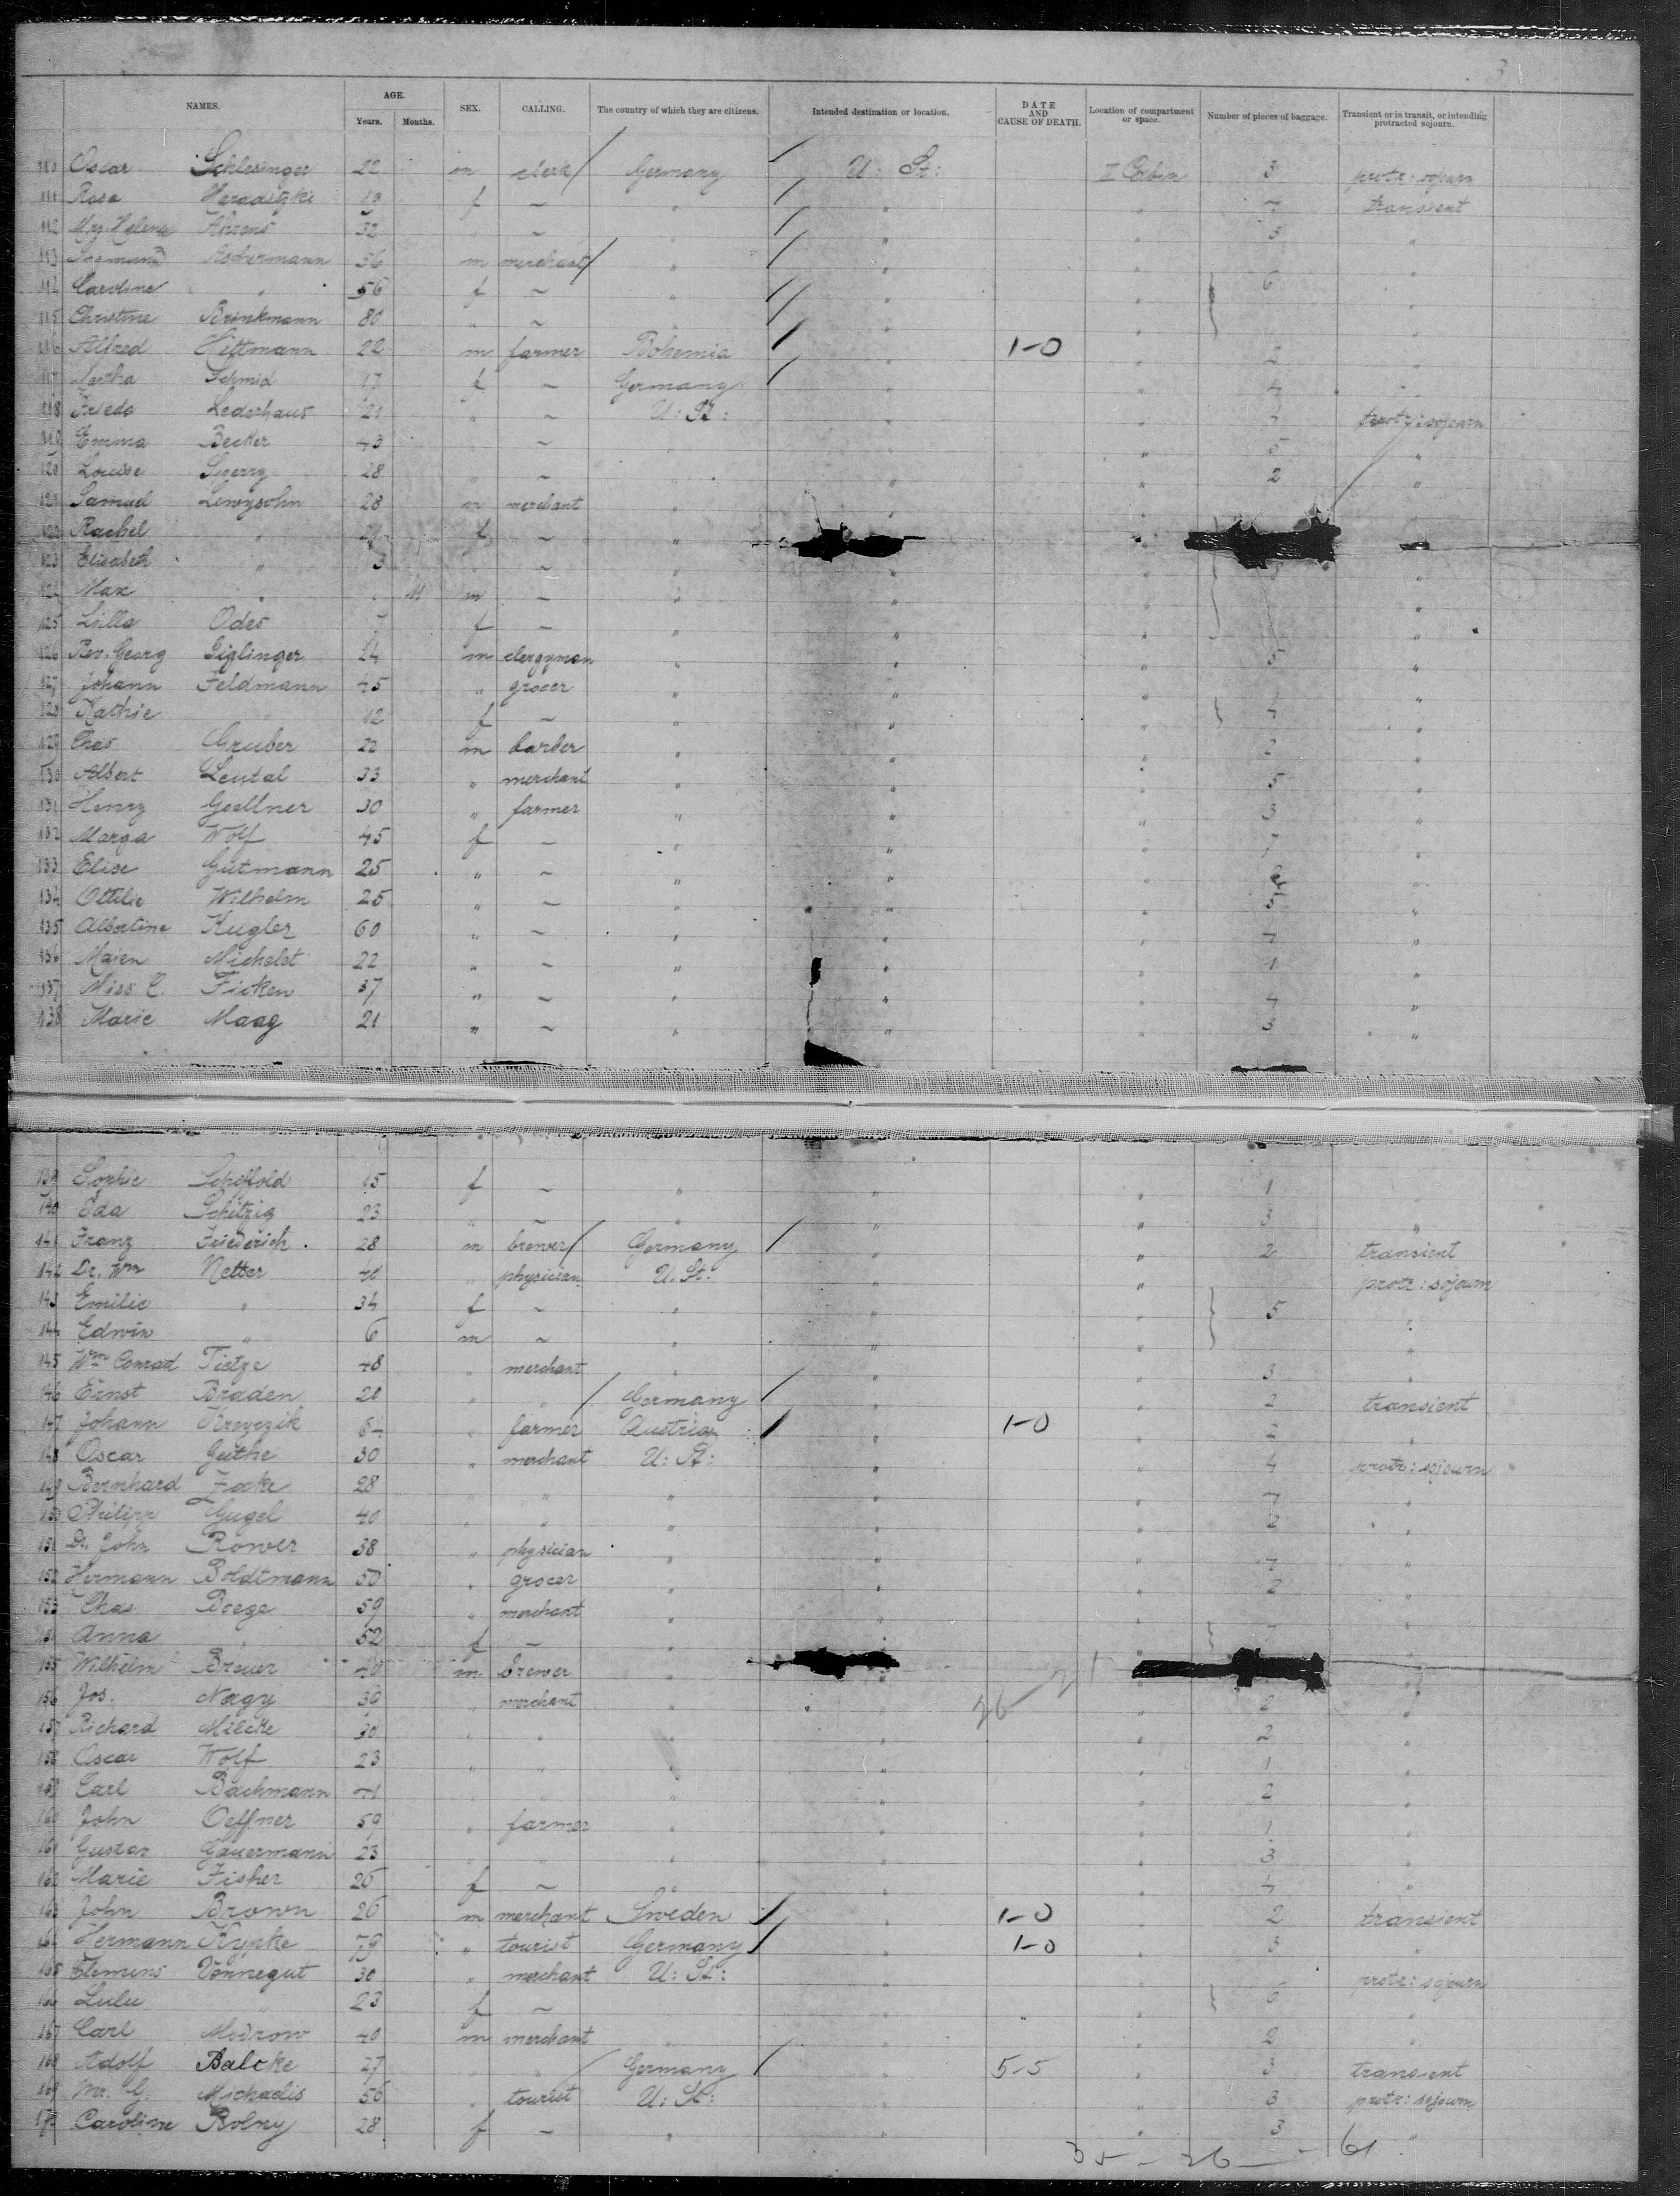 3
NAMES. AGE. Years. Months. SEX. CALLING. The country of which they are citizens. Intended destination or location. DATE AND CAUSE OF DEATH. Location of compartment or space. Number of pieces of baggage. Transient or in transit, or intending protracted sojourn.
110 Oscar Schlesinger 22 m clerk Germany U: St: II Cabin 3 protr: sojourn
111 Rosa f ~ " " " transient
112 Mrs. Helene Ahrens 32 " ~ " " " 3 "
113 Aschermann 56 m merchant " " " "
114 Caroline " 56 f ~ " " " 6 "
115 Christine Brinkmann 80 " ~ " " " "
116 Alfred Hittmann 22 m farmer Bohemia " 1-0 " 2 "
117 Martha Schmid 17 f ~ Germany " " 4 "
118 Frieda Lederhaus 21 " ~ U: St: " " protr: sojourn
119 Emma Becker 43 " ~ " " " 5 "
120 Louise Sperry 28 " ~ " " " 2 "
121 Samuel Lewysohn 28 m merchant " " " "
122 Rachel " f ~ " "
123 Elisabeth " 3 " ~ " " " "
124 Max " m ~ " " " "
125 Lilla Odes f ~ " " " "
126 Rev. Georg Giglinger m clergyman " " " 5 "
127 Johann Feldmann 45 " grocer " " " "
128 Kathie " 12 f ~ " " " 4 "
129 Chas Gruber 22 m barber " " " 2 "
130 Albert Leutal 33 " merchant " " " 5 "
131 Henry Goellner 30 " farmer " " " 3 "
132 Marga Wolf 45 f ~ " " " "
133 Elise Gutmann 25 " ~ " " " "
134 Ottilie Wilhelm 25 " ~ " " " 5 "
135 Albertine Kugler 60 " ~ " " " "
136 Maien Michelet 22 " ~ " " " 1 "
137 Miss C. Ficken 37 " ~ " " " 4 "
138 Marie Maag 21 " ~ " " " 3 "
139 Sophie Scheffold 15 f ~ " " " 1
140 Ida Schitzig 23 " ~ " " " 3 "
141 Franz Friederich. 28 m brewer Germany " " 2 transient
142 Dr. Wm Netter 40 " physician U. St. " " protr: sojourn
143 Emilie " 34 f ~ " " " 5 "
144 Edwin " 6 m ~ " " " "
145 Wm Conrad Tietze 48 " merchant " " " 3 "
146 Ernst Braden 28 " " Germany " " 2 transient
147 Johann Kreyczik 64 " farmer Austria " 1-0 " 2 "
148 Oscar Guthe 30 " merchant U: St: " " 4 protr: sojourn
149 Bernhard Focke 28 " " " " " "
150 Philipp Gugel 40 " " " " " 2 "
151 Dr. John Rower 38 " physician " " " "
152 Hermann Boldtmann 50 " grocer " " " 2 "
153 Chas Boege 59 " merchant " " " "
154 Anna " 52 f ~ " " "
155 Wilhelm Breuer 40 m brewer " " "
156 Jos. Nagy 39 " merchant " " " 2 "
26 - 21
157 Richard Milcke 30 " " " " " 2 "
158 Oscar Wolf 23 " " " " " 1 "
159 Carl Bachmann " " " " " 2 "
160 John Oeffner 59 " farmer " " " 1 "
161 Gustav Gauermann 23 " " " " " 3 "
162 Marie Fisher 26 f ~ " " " 4 "
163 John Brown 26 m merchant Sweden " 1-0 " 2 transient
164 Hermann Kypke 79 " tourist Germany " 1-0 " 3 "
165 Clemens Vonnegut 30 " merchant U: St: " " protr: sojourn
166 Lulu " 23 f ~ " " " 6 "
167 Carl Modrow 40 m merchant " " " 2 "
168 Adolf Balcke 27 " " Germany " 5-5 " 3 transient
169 Mr. G. Michaelis 56 " tourist U: St: " " 3 protr: sojourn
170 Caroline Rolny 28 f ~ " " " 3 "
35 - 26 - 61